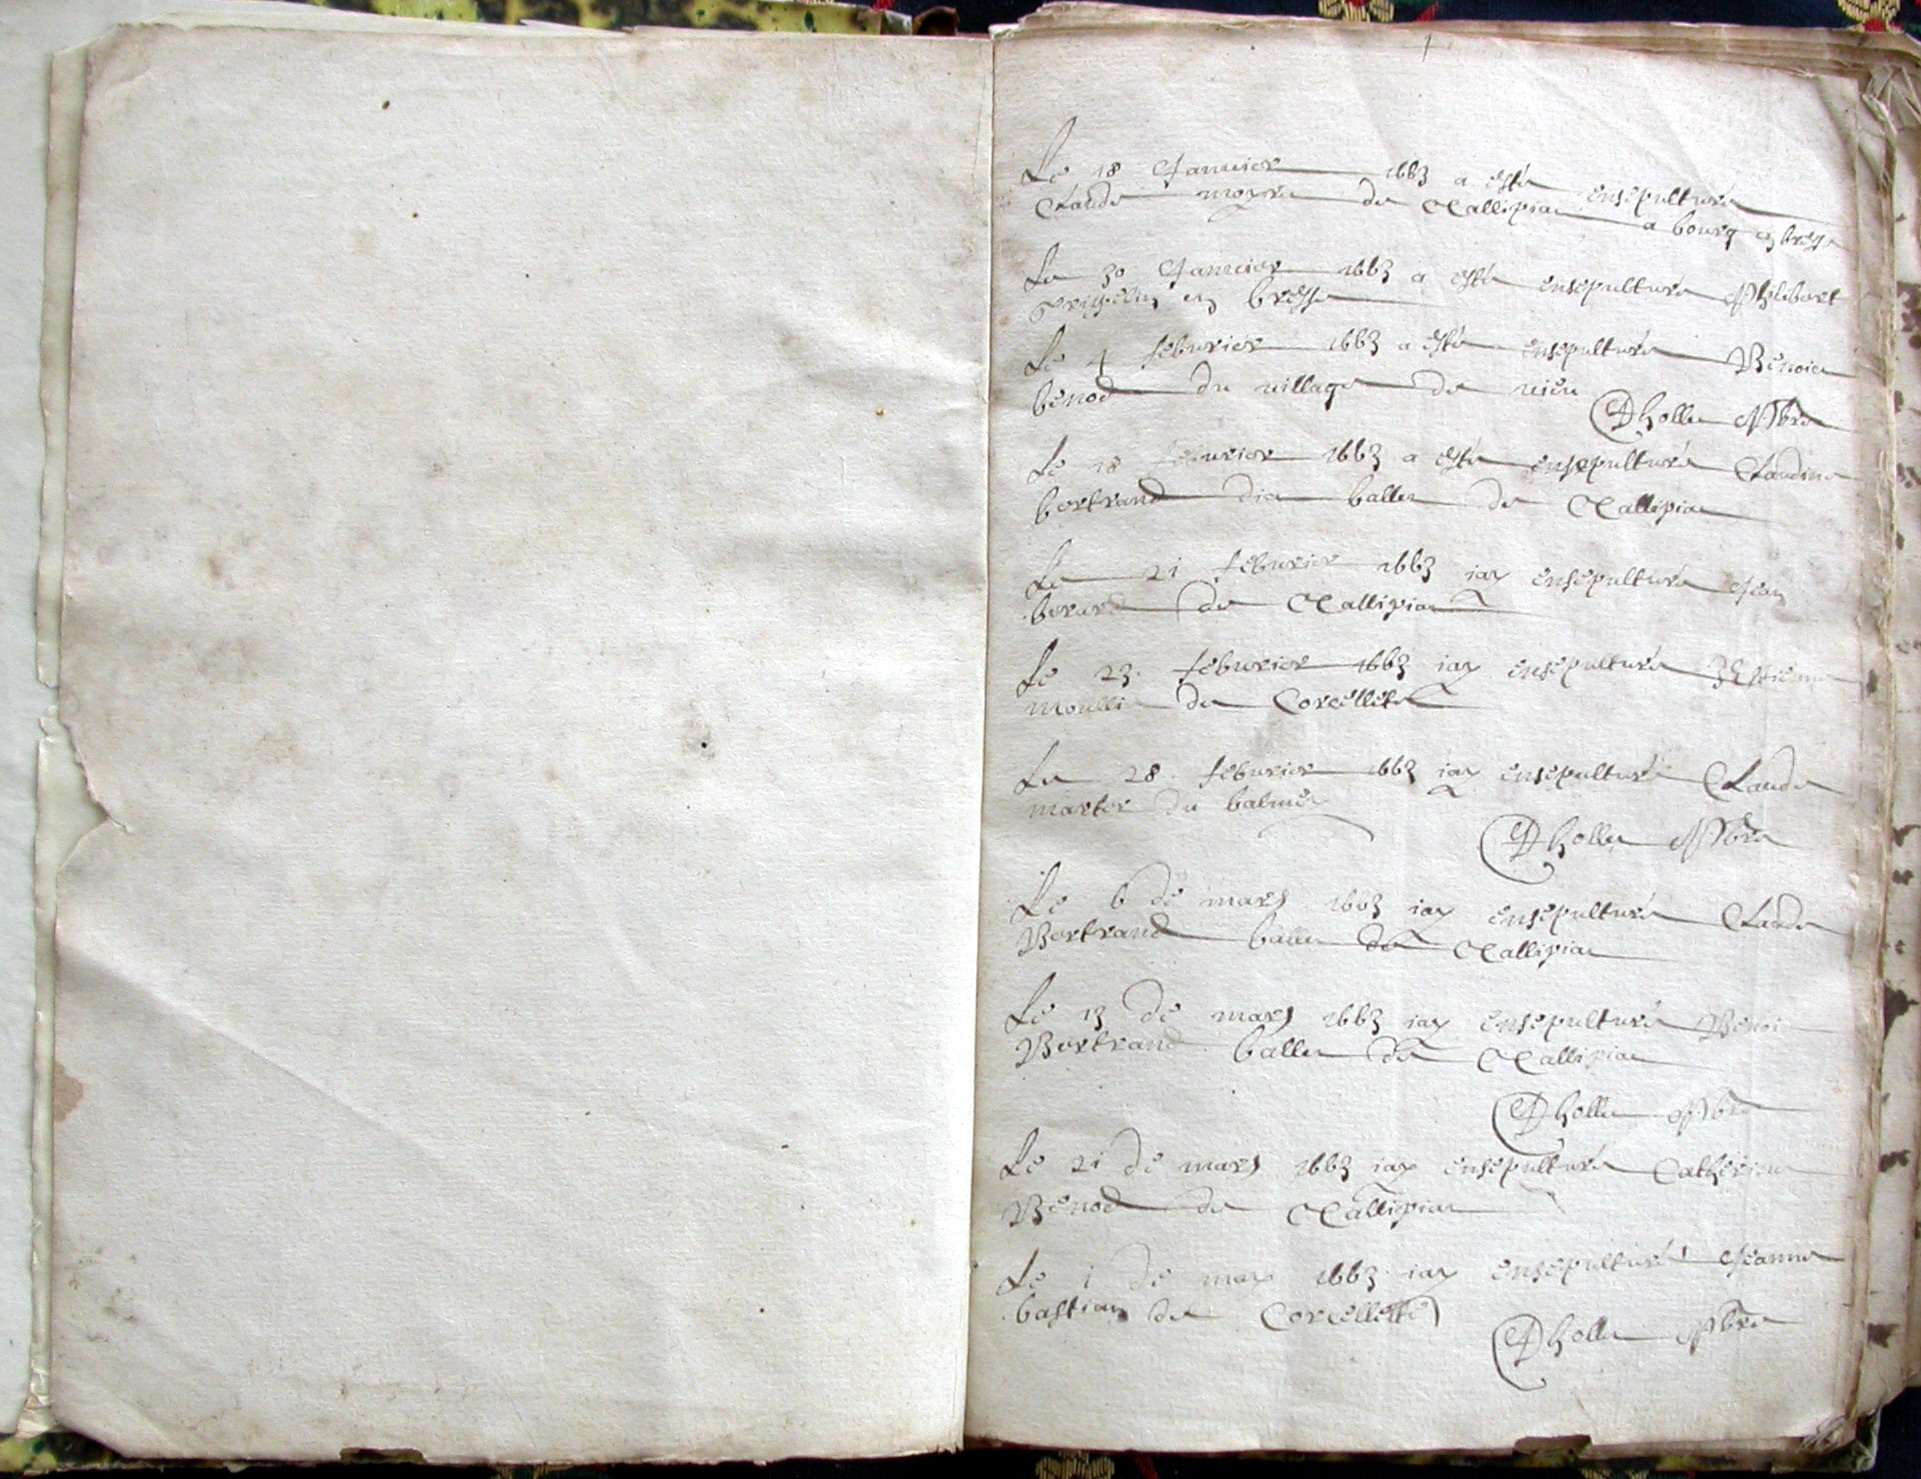 Le 18 Januier 1663 a esté ensepulturé
Claude moyne de Vallipia a bourg en bresse
Le 30 Januier 1663 a esté ensepulturé Philibert
en bresse
Le 4 feburier 1663 a esté ensepulturé Benoict
benod du village de uieu
Dhollu Pbre
Le 18 feburier 1663 a esté ensepulturé Claudine
bertrand dict ballu de Vallipia
Le 21 feburier 1663 iay ensepulturé Jean
berard de Vallipia
Le 23 feburier 1663 iay ensepulturé
moulli de Corcellete
Le 28 feburier 1663 iay ensepulturé Claude
marter du balmey
Dhollu Pbre
Le 6 de mars 1663 iay ensepulturé Claude
Bertrand ballu de Vallipia
Le 13 de mars 1663 iay ensepulturé Benoi
Bertrand ballu de Vallipia
Dhollu Pbre
Le 21 de mars 1663 iay ensepulturé Catherine
Benod de Vallipia
Le 1 de may 1663 iay ensepulturé Jeanne
bastian de Corcellette
Dhollu Pbre